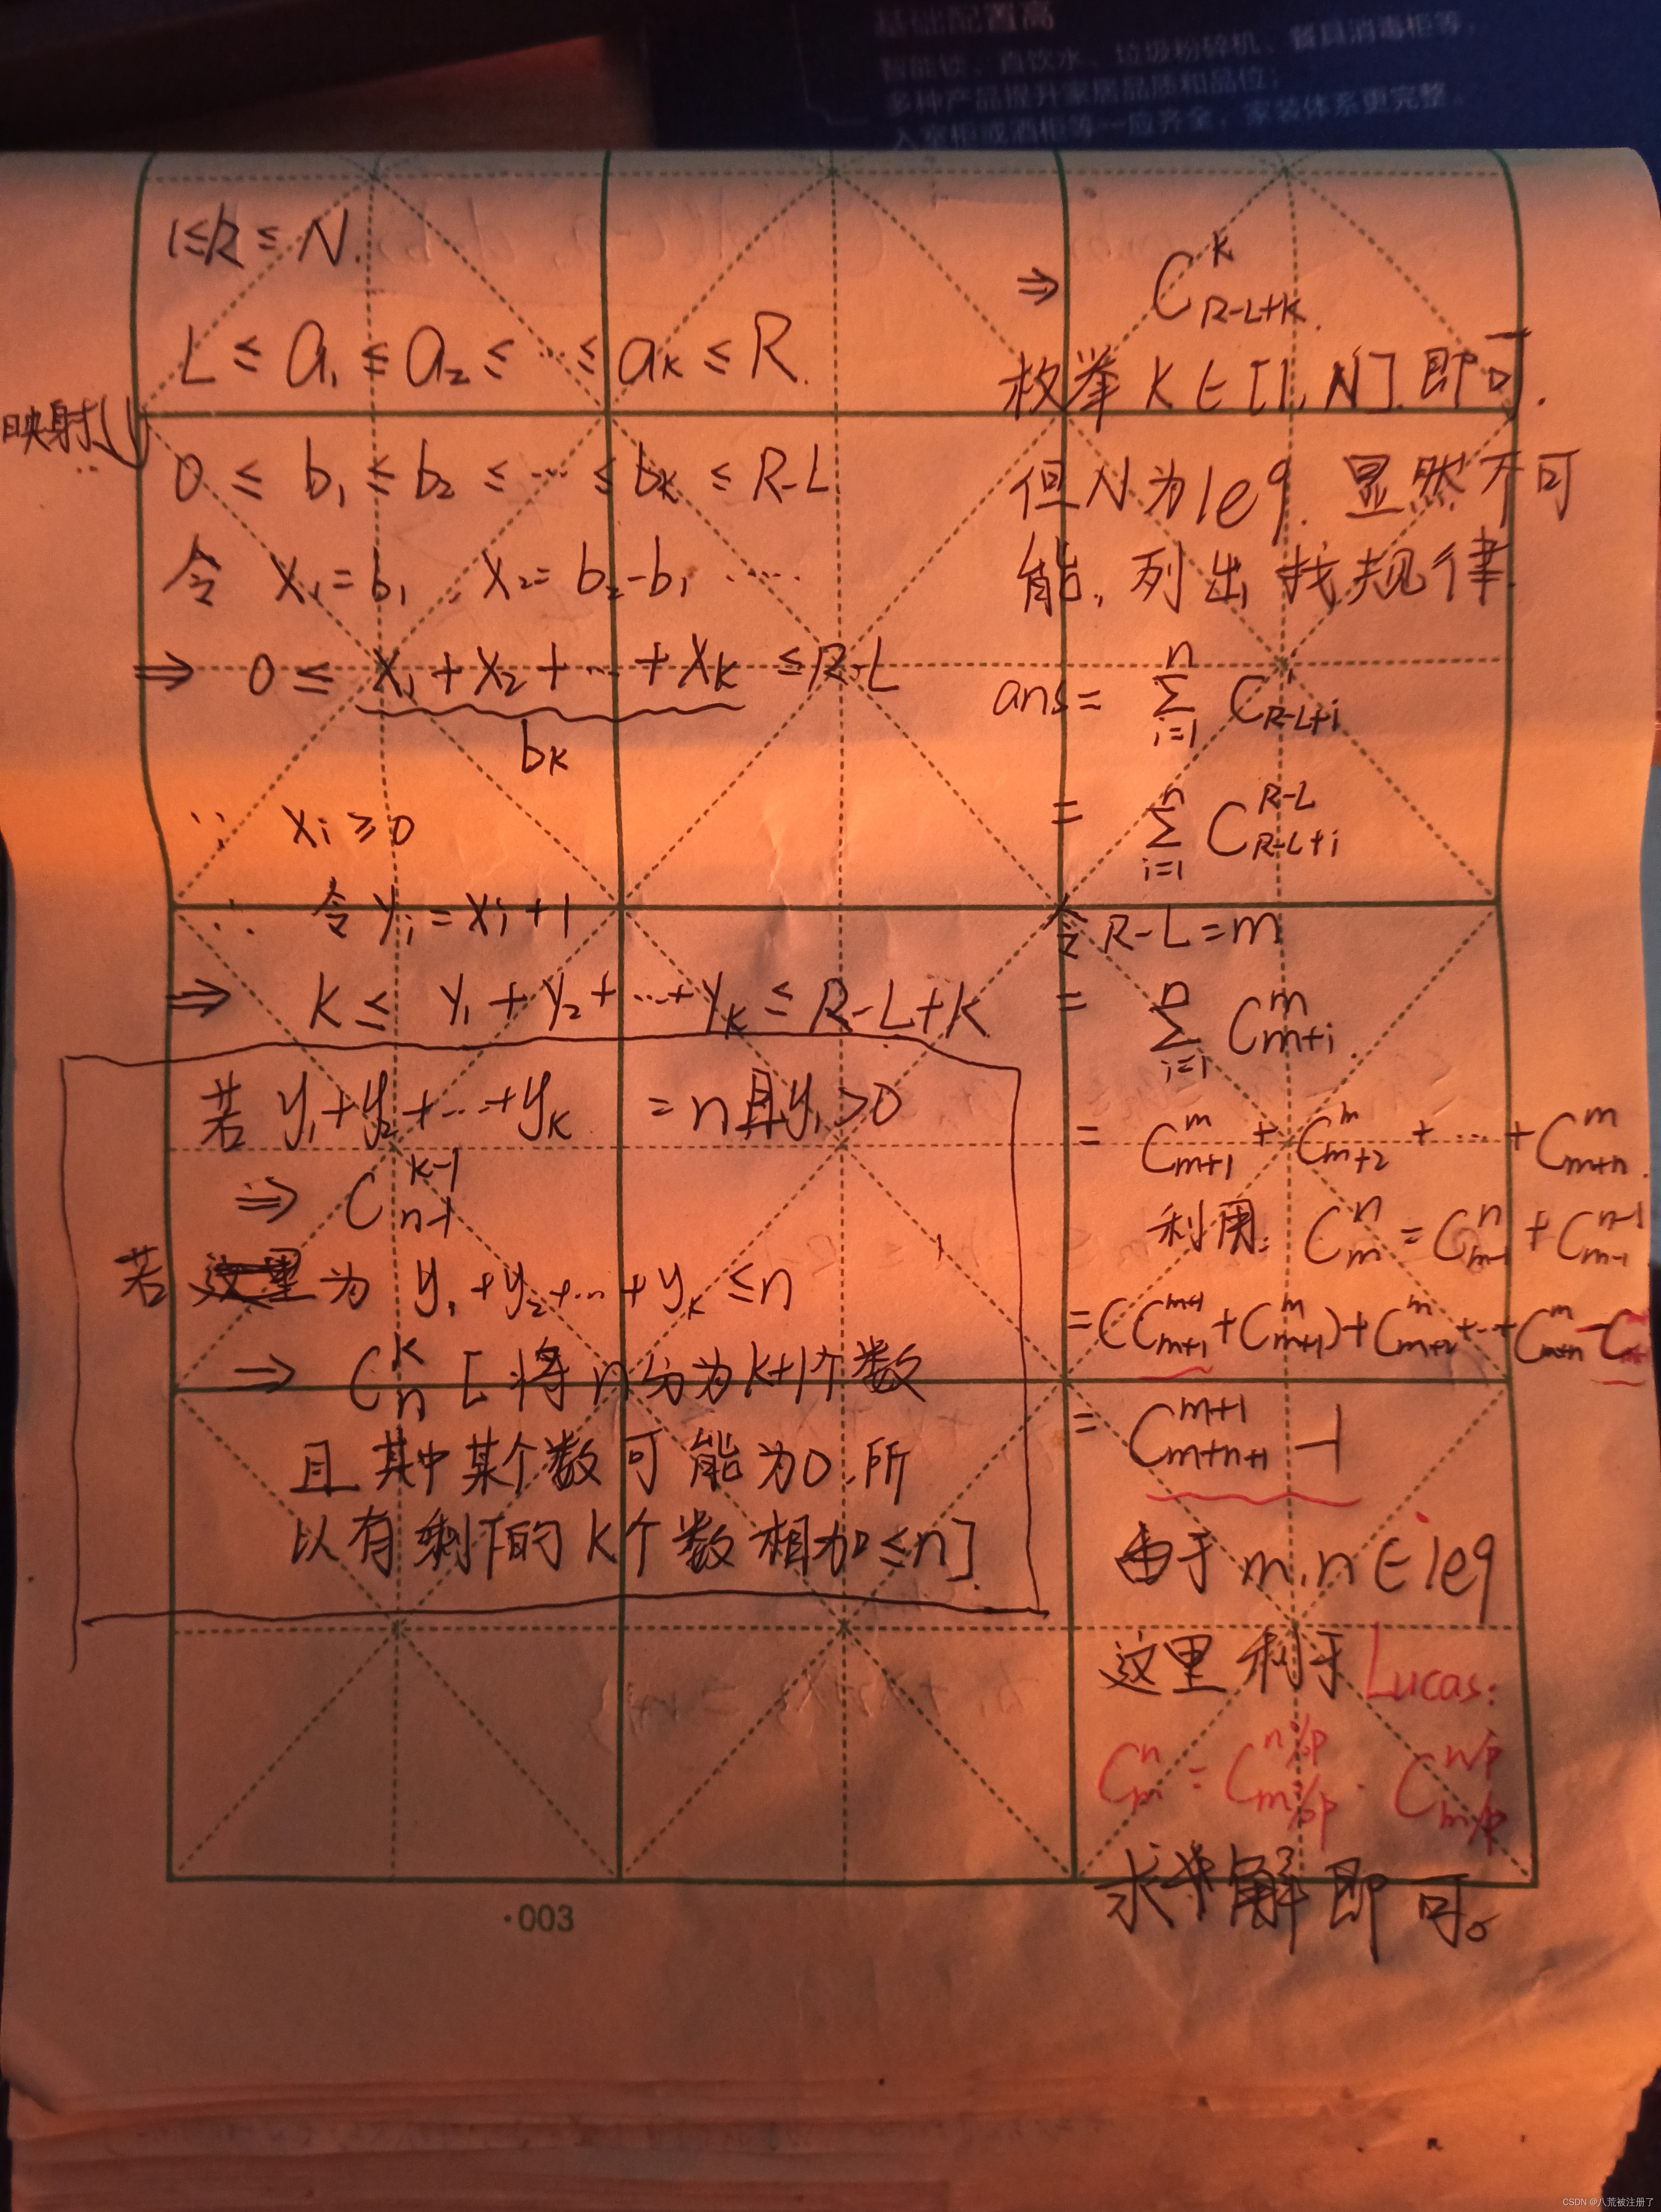 基础配置高
智能锁、直饮水、垃圾粉碎机、餐具消毒柜等,
多种产品提升家居品质和品位;
入室柜或酒柜等一应齐全,家装体系更完整。
1≤k≤N.
L ≤ a₁ ≤ a₂ ≤ ... ≤ aₖ ≤ R.
映射
0 ≤ b₁ ≤ b₂ ≤ ... ≤ bₖ ≤ R-L
令 x₁=b₁, x₂=b₂-b₁ .....
⇒ 0 ≤ x₁+x₂+...+xₖ ≤ R-L
bₖ
∵ xᵢ≥0
∴ 令yᵢ=xᵢ+1
⇒ k ≤ y₁+y₂+...+yₖ ≤ R-L+k
若 y₁+y₂+...+yₖ =n且yᵢ>0
⇒ C_{n-1}^{k-1}
若 为 y₁+y₂+...+yₖ ≤n
⇒ C_n^k [将n分为k+1个数
且其中某个数可能为0,所
以有剩下的k个数相加≤n].
⇒ C_{R-L+k}^k.
枚举 k∈[1,N].即可.
但N为1e9.显然不可
能,列出找规律.
ans= ∑_{i=1}^n C_{R-L+i}^i
= ∑_{i=1}^n C_{R-L+i}^{R-L}
令R-L=m
= ∑_{i=1}^n C_{m+i}^m.
= C_{m+1}^m + C_{m+2}^m + ... + C_{m+n}^m.
利用: C_m^n = C_{m-1}^n + C_{m-1}^{n-1}
=(C_{m+1}^{m+1}+C_{m+1}^m)+C_{m+2}^m+...+C_{m+n}^m-
= C_{m+n+1}^{m+1} -1
由于m,n∈1e9
这里利于Lucas:
C_m^n = C_{m%p}^{n%p} · C_{m/p}^{n/p}
求解即可。
·003
CSDN @八荒被注册了